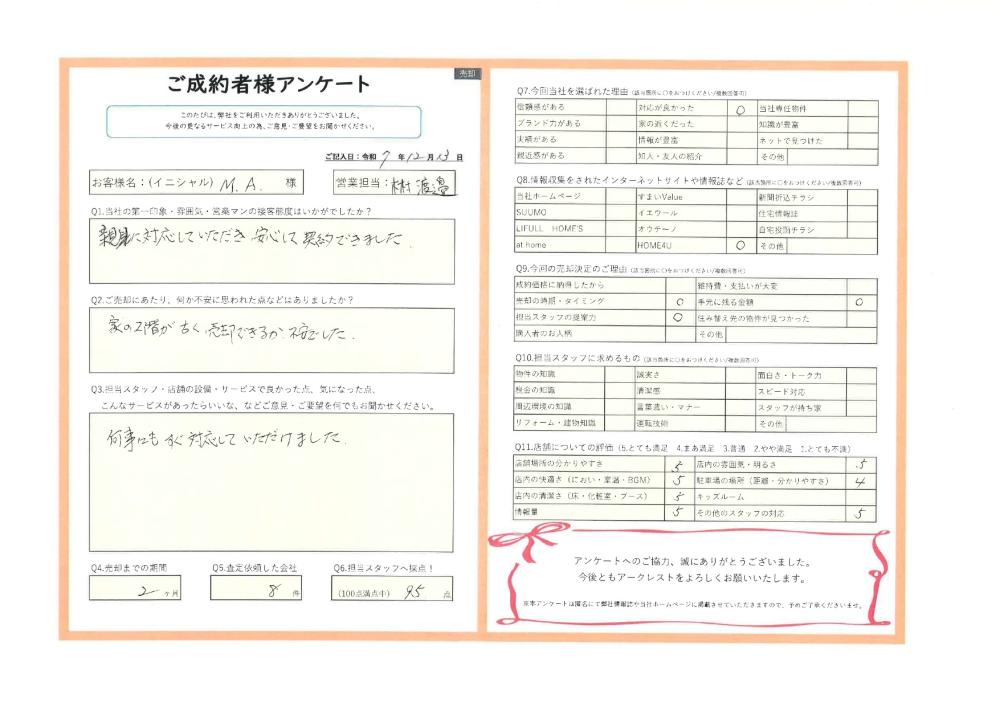 売却
ご成約者様アンケート
このたびは、弊社をご利用いただきありがとうございました。
今後の更なるサービス向上の為、ご意見・ご要望をお聞かせください。
ご記入日：令和 7 年 12 月 13 日
お客様名：(イニシャル) M. A. 様 営業担当： 渡邉
Q1.当社の第一印象・雰囲気・営業マンの接客態度はいかがでしたか？
親身に対応していただき 安心して 契約できました.
Q2.ご売却にあたり、何か不安に思われた点などはありましたか？
家の2階が古く 売却できるか 不安でした.
Q3.担当スタッフ・店舗の設備・サービスで良かった点、気になった点、
こんなサービスがあったらいいな、などご意見・ご要望を何でもお聞かせください。
何事にも すぐ 対応して いただけました.
Q4.売却までの期間 Q5.査定依頼した会社 Q6.担当スタッフへ採点！
2 ヶ月 8 件 (100点満点中) 95 点
Q7.今回当社を選ばれた理由 (該当箇所に〇をおつけください/複数回答可)
信頼感がある 対応が良かった 〇 当社専任物件
ブランド力がある 家の近くだった 知識が豊富
実績がある 情報が豊富 ネットで見つけた
親近感がある 知人・友人の紹介 その他
Q8.情報収集をされたインターネットサイトや情報誌など (該当箇所に〇をおつけください/複数回答可)
当社ホームページ すまいValue 新聞折込チラシ
SUUMO イエウール 住宅情報誌
LIFULL HOME'S オウチーノ 自宅投函チラシ
at home HOME4U 〇 その他
Q9.今回の売却決定のご理由 (該当箇所に〇をおつけください/複数回答可)
成約価格に納得したから 維持費・支払いが大変
売却の時期・タイミング 〇 手元に残る金額 〇
担当スタッフの提案力 〇 住み替え先の物件が見つかった
購入者のお人柄 その他
Q10.担当スタッフに求めるもの (該当箇所に〇をおつけください/複数回答可)
物件の知識 誠実さ 面白さ・トーク力
税金の知識 清潔感 スピード対応
周辺環境の知識 言葉遣い・マナー スタッフが持ち家
リフォーム・建物知識 運転技術 その他
Q11.店舗についての評価 (5.とても満足 4.まあ満足 3.普通 2.やや満足 1.とても不満)
店舗場所の分かりやすさ 5 店内の雰囲気・明るさ 5
店内の快適さ（におい・室温・BGM） 5 駐車場の場所（距離・分かりやすさ） 4
店内の清潔さ（床・化粧室・ブース） 5 キッズルーム
情報量 5 その他のスタッフの対応 5
アンケートへのご協力、誠にありがとうございました。
今後ともアークレストをよろしくお願いいたします。
※本アンケートは匿名にて弊社情報誌や当社ホームページに掲載させていただきますので、予めご了承くださいませ。